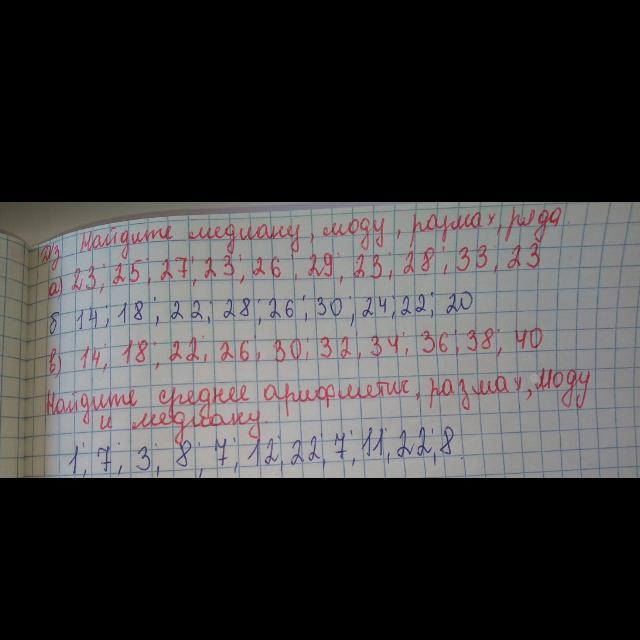 Найдите медиану, моду, размах, ряда
а) 23; 25; 27; 23; 26; 29; 23; 28; 33; 23
б 14; 18; 22; 28; 26; 30; 24; 22; 20
в) 14; 18; 22; 26; 30; 32; 34; 36; 38; 40
Найдите среднее арифметич, размах, моду
и медиану
1; 7; 3; 8; 7; 12; 22; 7; 11; 22; 8